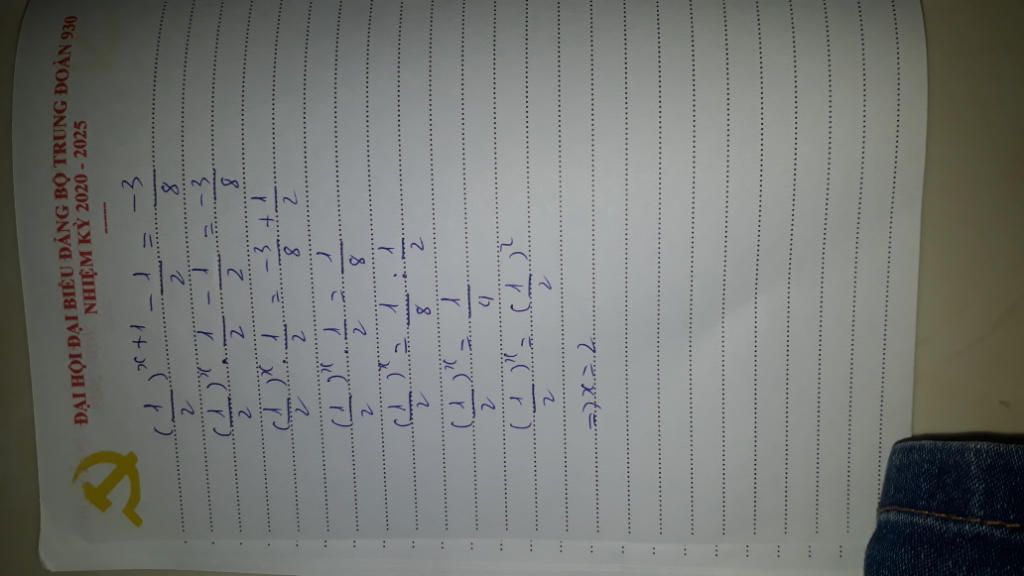 ĐẠI HỘI ĐẠI BIỂU ĐẢNG BỘ TRUNG ĐOÀN 930
NHIỆM KỲ 2020 - 2025
(1/2)^(x+1) - 1/2 = -3/8
(1/2)^x . 1/2 - 1/2 = -3/8
(1/2)^x . 1/2 = -3/8 + 1/2
(1/2)^x . 1/2 = 1/8
(1/2)^x = 1/8 : 1/2
(1/2)^x = 1/4
(1/2)^x = (1/2)^2
=> x = 2